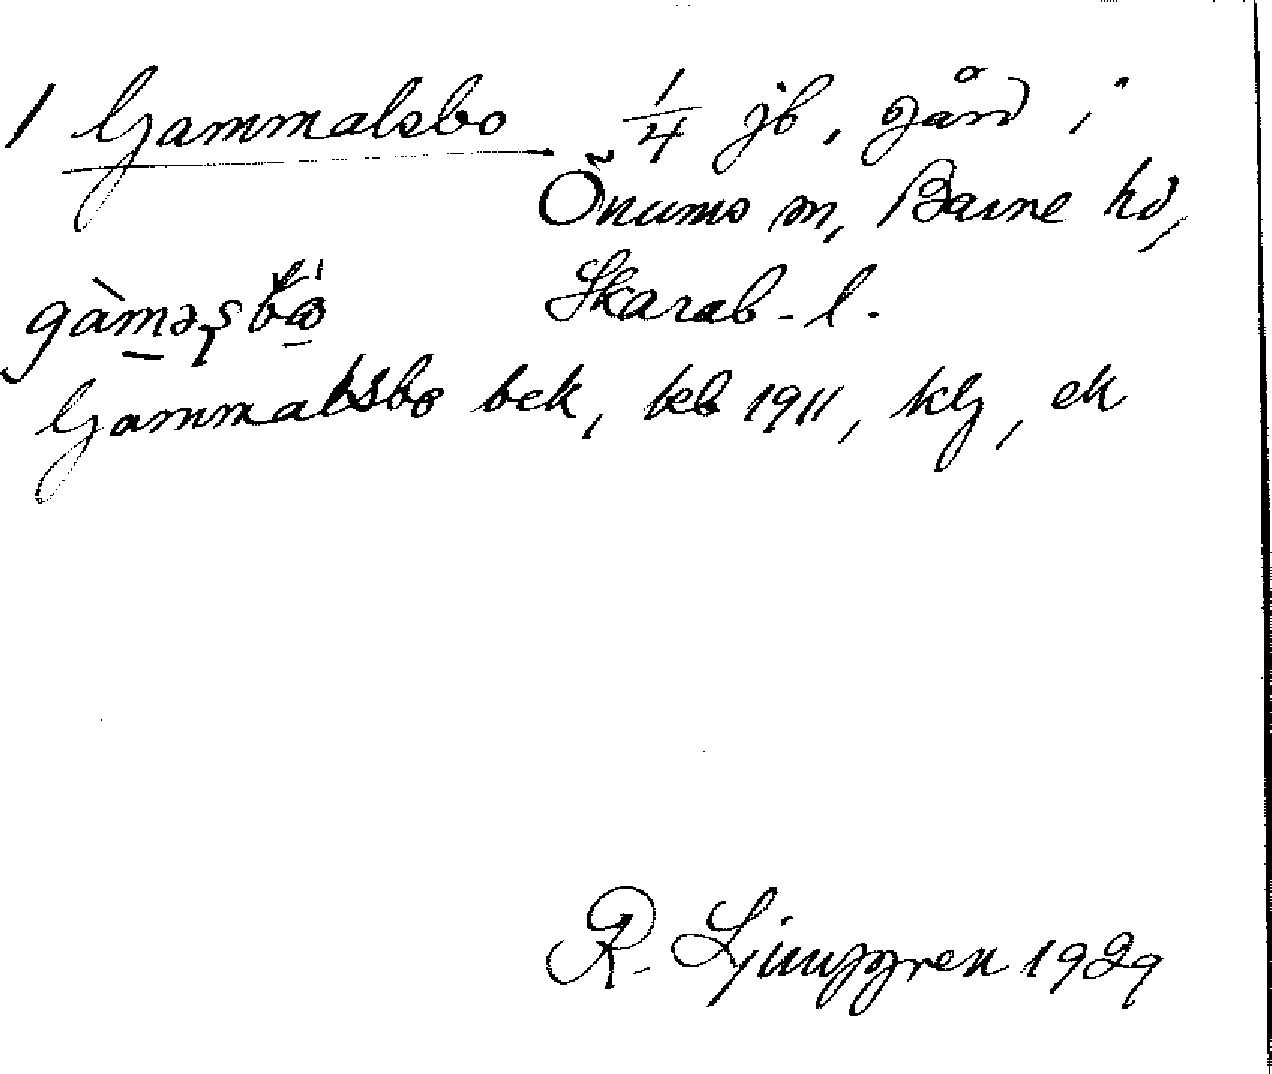 1 Gammalsbo 1/4 jb, gård i
Önums sn, Barne hd,
Skarab. l.
Gammalsbo bek, keb 1911, klg, ek
R. Ljunggren 1929